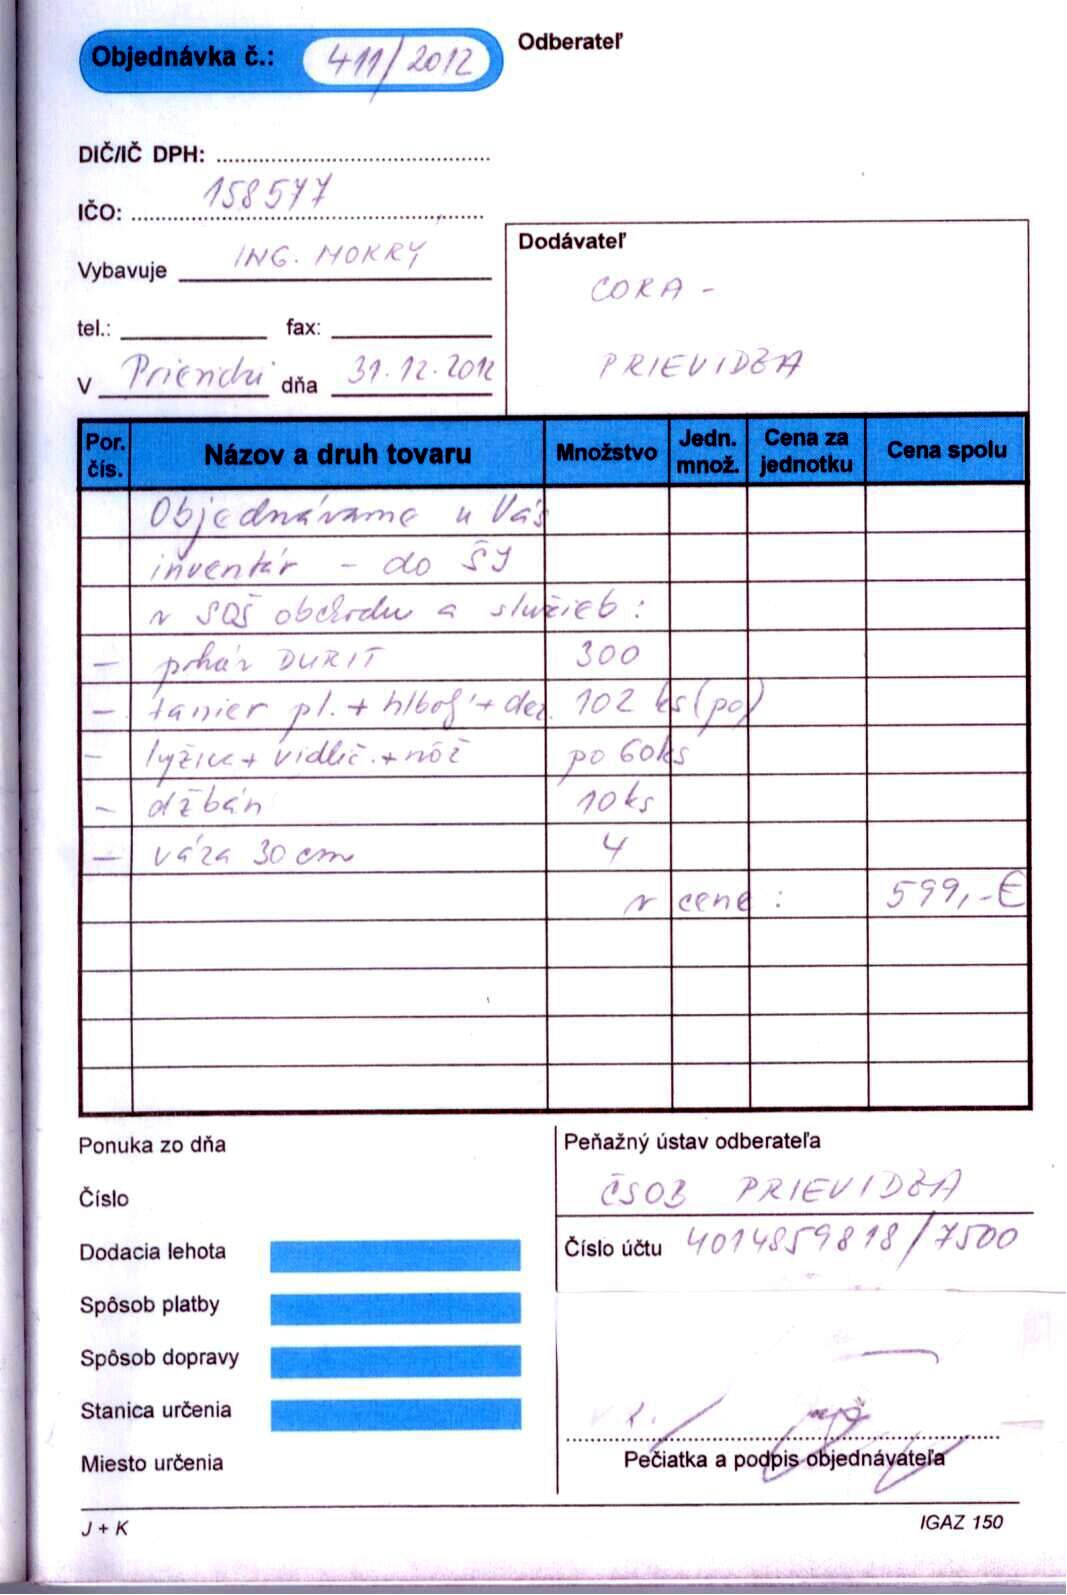 Objednávka č.: 411/2012
Odberateľ
DIČ/IČ DPH:
IČO: 158577
Vybavuje ING. MOKRÝ
tel.: fax:
V Prievidzi dňa 31.12.2012
Dodávateľ
CORA -
PRIEVIDZA
Por. čís. Názov a druh tovaru Množstvo Jedn. množ. Cena za jednotku Cena spolu
Objednávame u Vás
inventár - do ŠJ
v SOŠ obchodu a služieb :
- pohár DURIT 300
- tanier pl. + hlbok + dez. 102 ks (po)
- lyžice + vidlič. + nôž po 60ks
- džbán 10ks
- váza 30 cm 4
v cene : 599,-€
Ponuka zo dňa
Číslo
Dodacia lehota
Spôsob platby
Spôsob dopravy
Stanica určenia
Miesto určenia
Peňažný ústav odberateľa
ČSOB PRIEVIDZA
Číslo účtu 4014859818/7500
Pečiatka a podpis objednávateľa
J + K
IGAZ 150